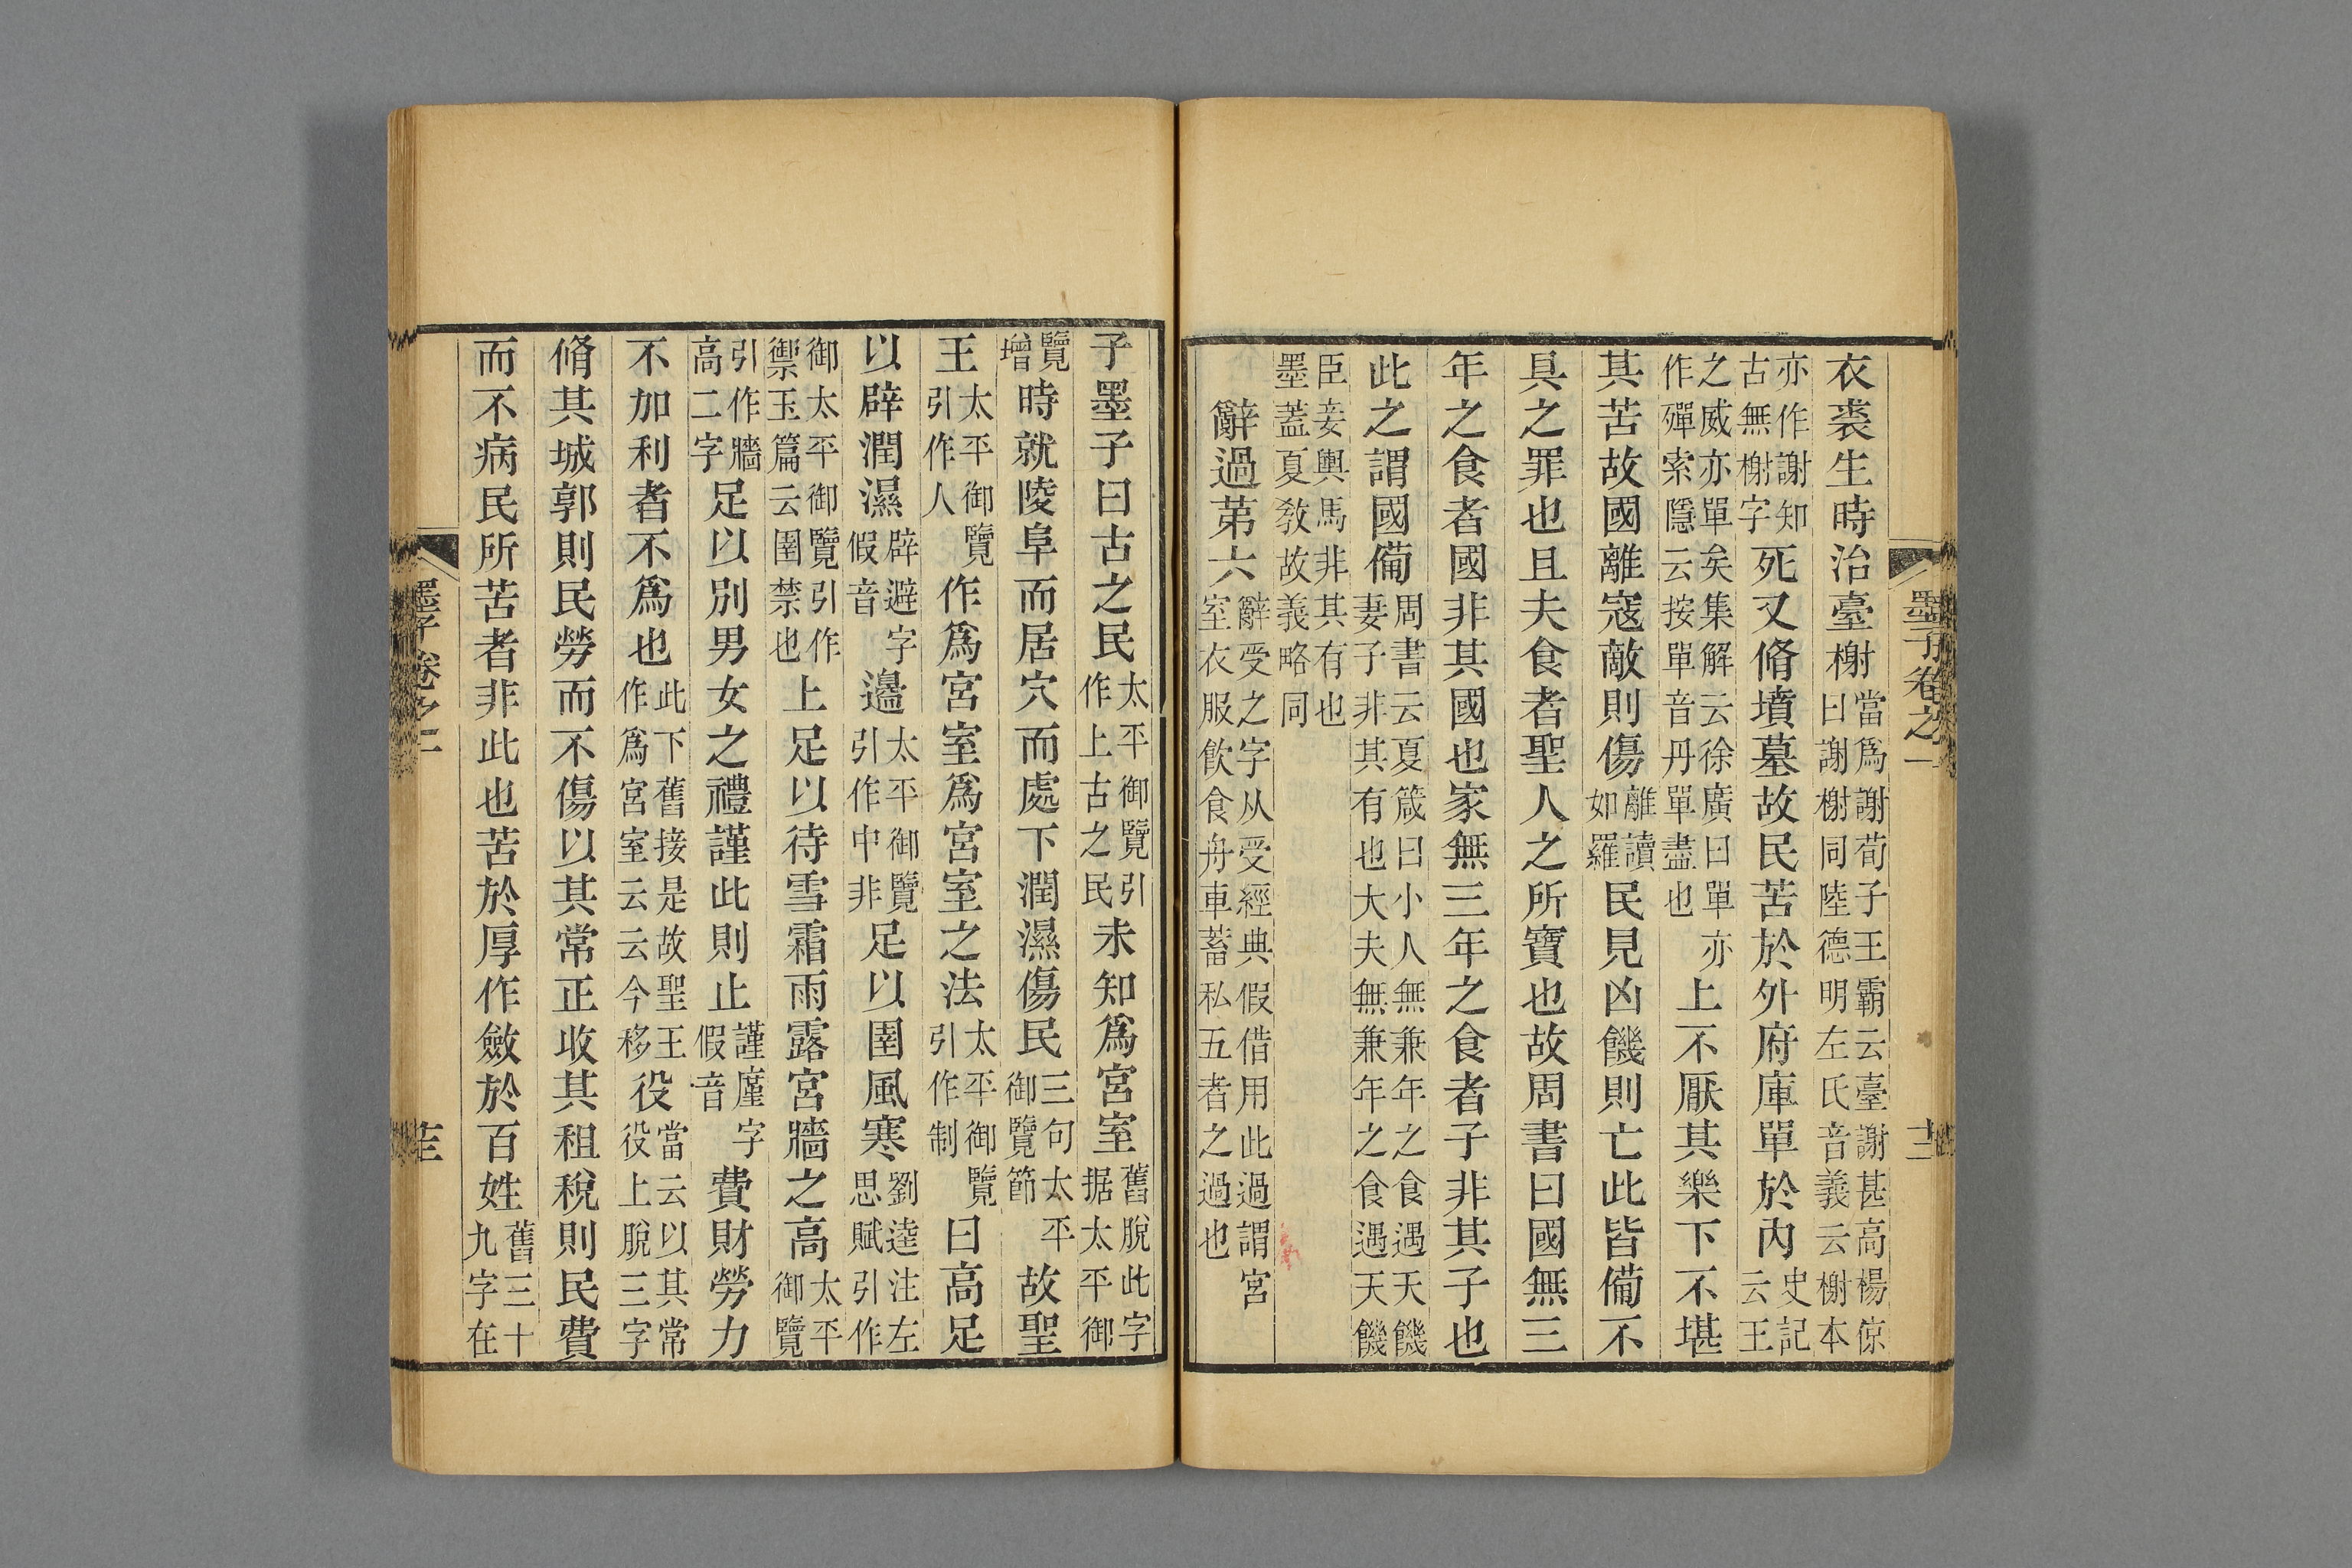 墨子卷之一 十二
衣裘生時治臺榭當爲謝荀子王霸云臺謝甚高楊倞曰謝榭同陸德明左氏音義云榭本
亦作謝知古無榭字死又脩墳墓故民苦於外府庫單於內史記云王
之威亦單矣集解云徐廣曰單亦作殫索隱云按單音丹單盡也上不厭其樂下不堪
其苦故國離寇敵則傷離讀如羅民見凶饑則亡此皆備不
具之罪也且夫食者聖人之所寶也故周書曰國無三
年之食者國非其國也家無三年之食者子非其子也
此之謂國備周書云夏箴曰小人無兼年之食遇天饑妻子非其有也大夫無兼年之食遇天饑
臣妾輿馬非其有也墨蓋夏敎故義略同
辭過第六辭受之字从受經典假借用此過謂宮室衣服飮食舟車蓄私五者之過也
子墨子曰古之民太平御覽引作上古之民未知爲宮室舊脫此字据太平御
覽增時就陵阜而居穴而處下潤濕傷民三句太平御覽節故聖
王太平御覽引作人作爲宮室爲宮室之法太平御覽引作制曰高足
以辟潤濕辟避字假音邊太平御覽引作中非足以圉風寒劉逵注左思賦引作
御太平御覽引作禦玉篇云圉禁也上足以待雪霜雨露宮牆之高太平御覽
引作牆高二字足以別男女之禮謹此則止謹廑字假音費財勞力
不加利者不爲也此下舊接是故聖王作爲宮室云云今移役當云以其常役上脫三字
脩其城郭則民勞而不傷以其常正收其租稅則民費
而不病民所苦者非此也苦於厚作斂於百姓舊三十九字在
墨子卷之一